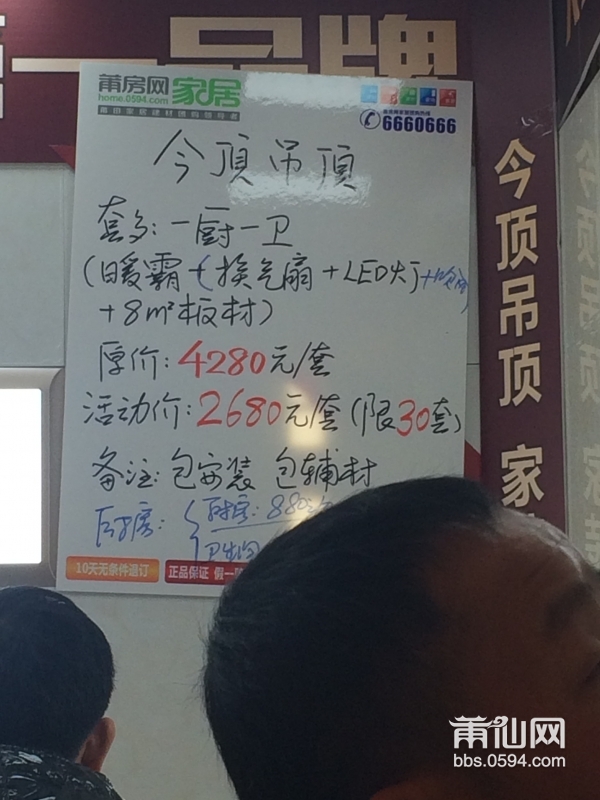 一品牌
莆房网 家居
home.0594.com
莆田家居建材团购领导者
莆房网家居团购热线
6660666
今頂吊頂
套多:一厨一卫
(暖霸+(换气扇+LED灯
+8m²板材)
原价:4280元/套
活动价:2680元/套(限30套)
备注:包安装 包辅材
880
卫生间
10天无条件退订
正品保证 假一
今顶吊顶 家
莆仙网
bbs.0594.com